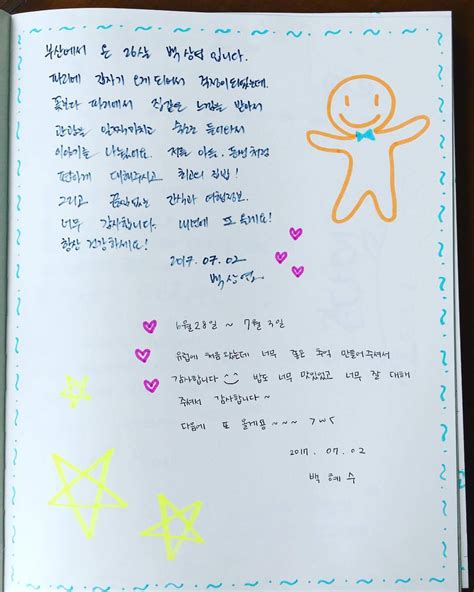 부산에서 온 26살 백상엽 입니다.
파리에 갑자기 오게 되어서 걱정이 되었는데,
파리에서 집같은 느낌을 받아서
관광을 일찍 마치고 숙소로 돌아와서
이야기를 나눴네요. 저를 아들, 동생처럼
편하게 대해주시고 최고의 집밥!
그리고 끝없는 간식과 여행정보.
너무 감사합니다. 내년에 또 올게요!
항상 건강하세요!
2017.07.02
백상엽
6월28일 ~ 7월 3일
유럽에 처음 왔는데 너무 좋은 추억 만들어주셔서
감사합니다 밥도 너무 맛있었고 너무 잘 대해
주셔서 감사합니다~
다음에 또 올게용~~~
2017. 07. 02
백혜수